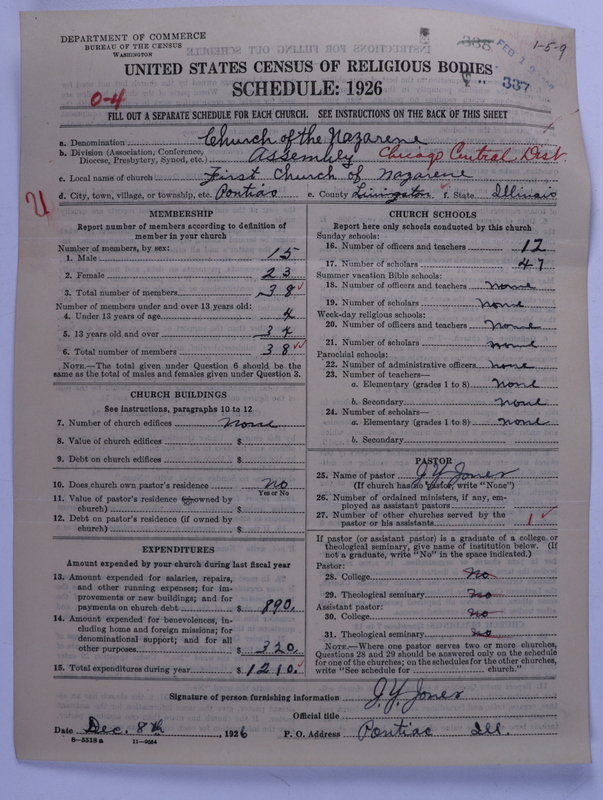 DEPARTMENT OF COMMERCE
BUREAU OF THE CENSUS
WASHINGTON
388
FEB 10
337
1-5-9
UNITED STATES CENSUS OF RELIGIOUS BODIES
SCHEDULE: 1926
0-4
FILL OUT A SEPARATE SCHEDULE FOR EACH CHURCH. SEE INSTRUCTIONS ON THE BACK OF THIS SHEET
a. Denomination Church of the Nazarene
b. Division (Association, Conference, Diocese, Presbytery, Synod, etc.) Assembly Chicago Central Dist.
c. Local name of church First Church of Nazarene
d. City, town, village, or township, etc. Pontiac e. County Livingston f. State Illinois
MEMBERSHIP
Report number of members according to definition of
member in your church
Number of members, by sex:
1. Male 15
2. Female 23
3. Total number of members 38
Number of members under and over 13 years old:
4. Under 13 years of age 4
5. 13 years old and over 34
6. Total number of members 38
NOTE.—The total given under Question 6 should be
same as the total of males and females given under Question 3.
CHURCH BUILDINGS
See instructions, paragraphs 10 to 12
7. Number of church edifices none
8. Value of church edifices $
9. Debt on church edifices $
10. Does church own pastor's residence no
Yes or No
11. Value of pastor's residence (if owned by
church) $
12. Debt on pastor's residence (if owned by
church) $
EXPENDITURES
Amount expended by your church during last fiscal year
13. Amount expended for salaries, repairs,
and other running expenses; for im-
provements or new buildings; and for
payments on church debt $ 890.
14. Amount expended for benevolences, in-
cluding home and foreign missions; for
denominational support; and for all
other purposes $ 320
15. Total expenditures during year $ 1210.
CHURCH SCHOOLS
Report here only schools conducted by this church
Sunday schools:
16. Number of officers and teachers 12
17. Number of scholars 47
Summer vacation Bible schools:
18. Number of officers and teachers none
19. Number of scholars none
Week-day religious schools:
20. Number of officers and teachers none
21. Number of scholars none
Parochial schools:
22. Number of administrative officers none
23. Number of teachers—
a. Elementary (grades 1 to 8) none
b. Secondary none
24. Number of scholars—
a. Elementary (grades 1 to 8) none
b. Secondary
PASTOR
25. Name of pastor J. Y. Jones
(If church has no pastor, write "None")
26. Number of ordained ministers, if any, em-
ployed as assistant pastors
27. Number of other churches served by the
pastor or his assistants 1
If pastor (or assistant pastor) is a graduate of a college or
theological seminary, give name of institution below. (If
not a graduate, write "No" in the space indicated.)
Pastor:
28. College No
29. Theological seminary No
Assistant pastor:
30. College No
31. Theological seminary No
NOTE.—Where one pastor serves two or more churches,
Questions 28 and 29 should be answered only on the schedule
for one of the churches; on the schedules for the other churches,
write "See schedule for church."
Signature of person furnishing information J. Y. Jones
Official title
Date Dec. 8th, 1926 P. O. Address Pontiac Ill.
8—5518a 11—9034